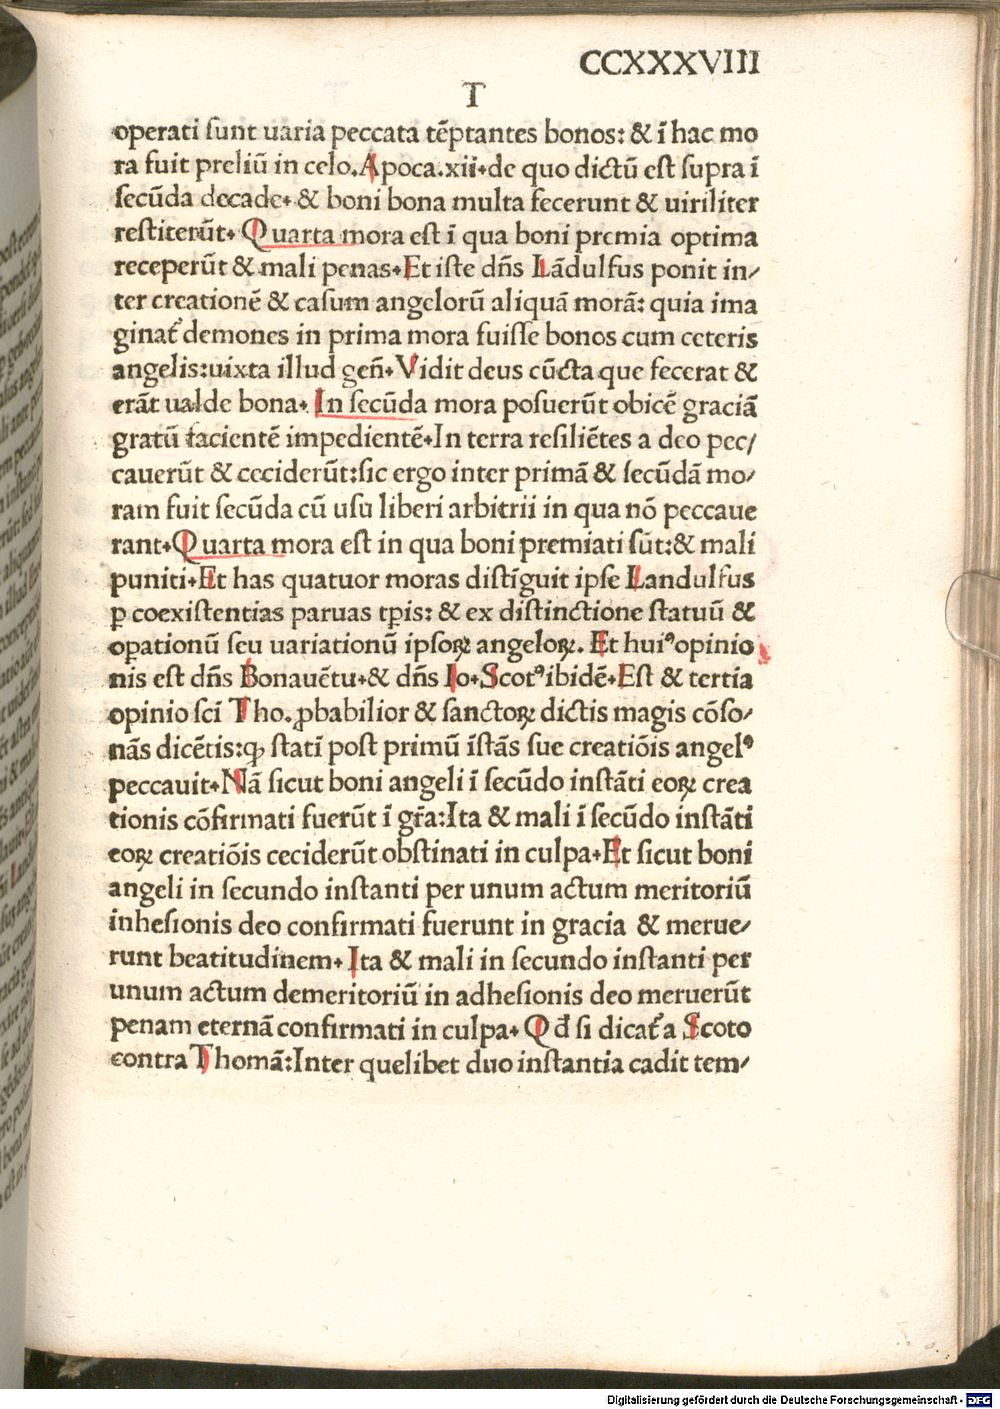 CCXXXVIII
T
operati ſunt uaria peccata tēptantes bonos: & ī hac mo
ra fuit preliū in celo. Apoca.xii. de quo dictū eſt ſupra ī
ſecūda decade. & boni bona multa fecerunt & uiriliter
reſtiterūt. Quarta mora eſt ī qua boni premia optima
receperūt & mali penas. Et iſte dn̄s Lādulfus ponit in/
ter creationē & caſum angelorū aliquā morā: quia ima
ginat᷑ demones in prima mora fuiſſe bonos cum ceteris
angelis: uixta illud gen̄. Vidit deus cūcta que fecerat &
erāt ualde bona. In ſecūda mora poſuerūt obicē graciā
gratū facientē impedientē. In terra reſiliētes a deo pec/
cauerūt & ceciderūt: ſic ergo inter primā & ſecūdā mo/
ram fuit ſecūda cū uſu liberi arbitrii in qua nō peccaue
rant. Quarta mora eſt in qua boni premiati ſūt: & mali
puniti. Et has quatuor moras diſtīguit ipſe Landulfus
ꝑ coexiſtentias paruas tp̄is: & ex diſtinctione ſtatuū &
oꝑationū ſeu uariationū ipſoꝝ angeloꝝ. Et huiꝰ opinio
nis eſt dn̄s Bonauētu. & dn̄s Io. Scotꝰ ibidē. Eſt & tertia
opinio ſci̅ Tho. ꝓbabilior & ſanctoꝝ dictis magis cōſo/
nās dicētis: ꝙ ſtatī poſt primū īſtās ſue creatiōis angelꝰ
peccauit. Nā ſicut boni angeli ī ſecūdo inſtāti eoꝝ crea
tionis cōfirmati fuerūt ī gr̄a: Ita & mali ī ſecūdo inſtāti
eoꝝ creatiōis ceciderūt obſtinati in culpa. Et ſicut boni
angeli in ſecundo inſtanti per unum actum meritoriū
inheſionis deo confirmati fuerunt in gracia & merue/
runt beatitudinem. Ita & mali in ſecundo inſtanti per
unum actum demeritoriū in adheſionis deo meruerūt
penam eternā confirmati in culpa. Qd̄ ſi dicat᷑ a Scoto
contra Thomā: Inter quelibet duo inſtantia cadit tem/
Digitalisierung gefördert durch die Deutsche Forschungsgemeinschaft - DFG